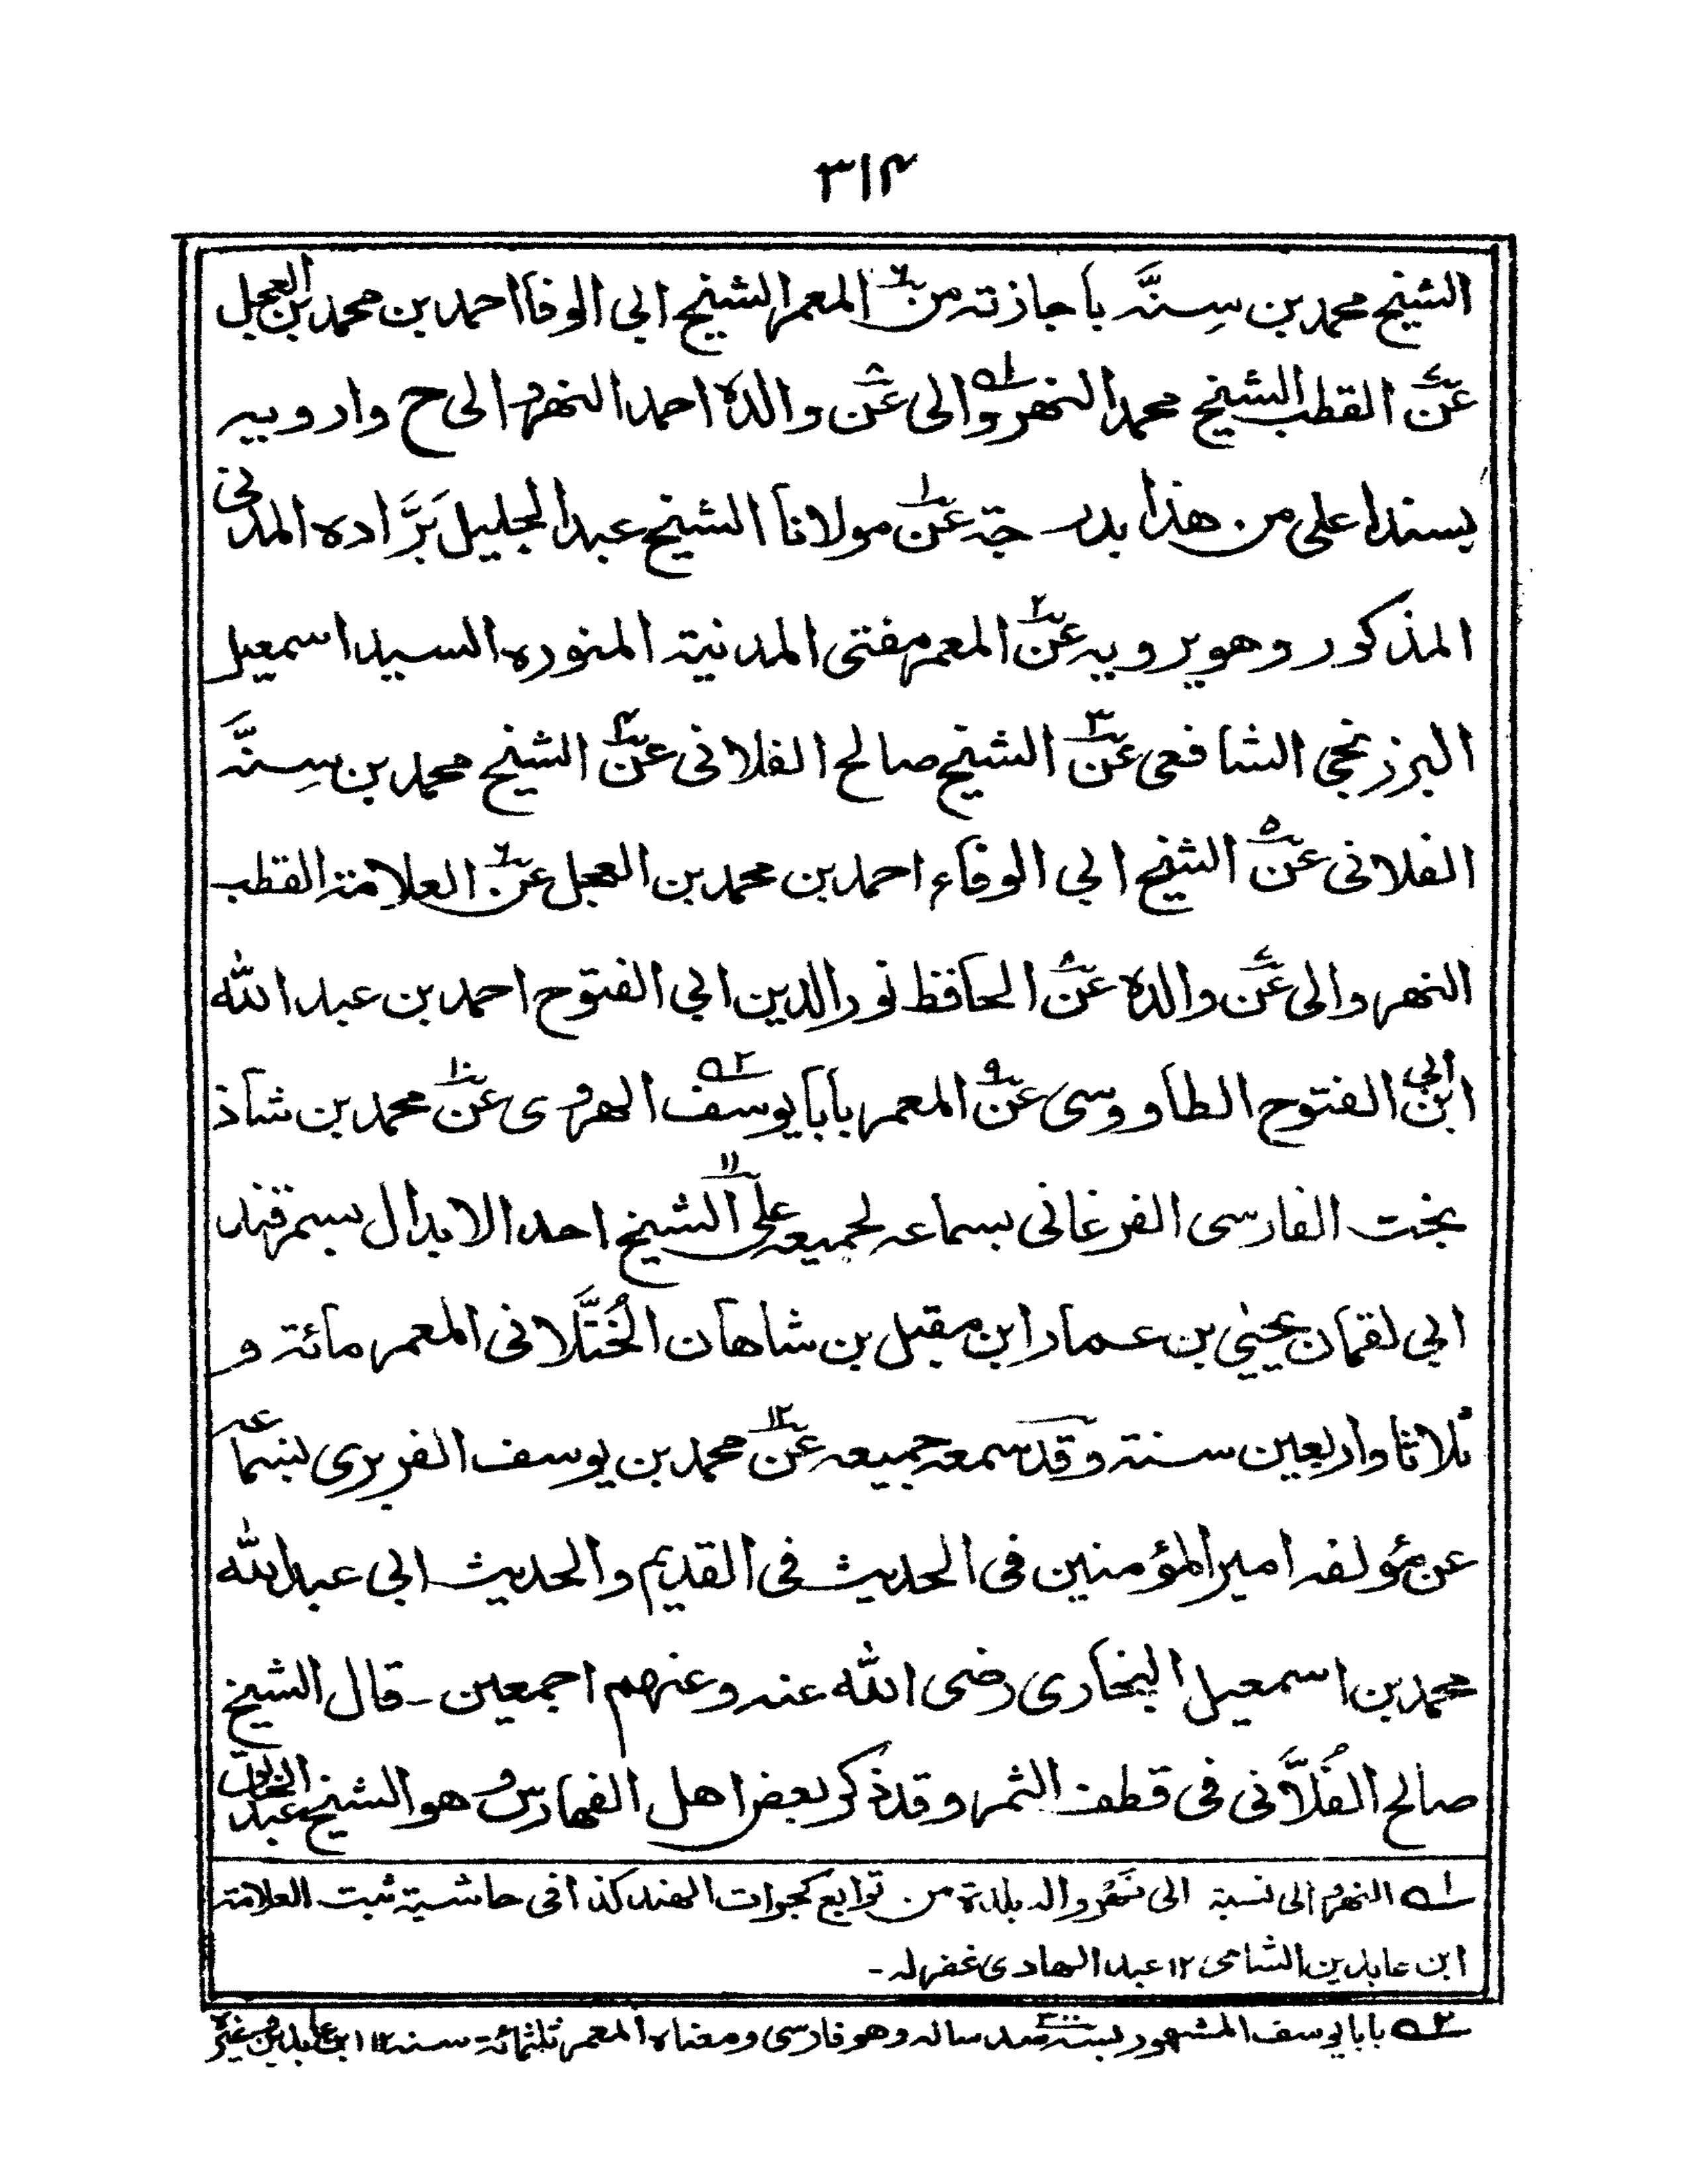 ٣١٤
الشيخ محمد بن سِنَّه باجازته من٦ المعمر الشيخ ابى الوفا احمد بن محمد بن العجل
عن٧ القطب الشيخ محمد النهروالى١ عن٨ والده احمد النهروالى ح وارويه
بسند اعلى من هذا بدرجة عن١ مولانا الشيخ عبد الجليل بَرَّاده المدنى
المذكور وهو يرويه عن٢ المعمر مفتى المدنية المنوره السيد اسمعيل
البرزنجى الشافعى عن٣ الشيخ صالح الفلانى عن٤ الشيخ محمد بن سِنَّه
الفلانى عن٥ الشيخ ابى الوفاء احمد بن محمد بن العجل عن٦ العلامة القطب
النهروالى عن٧ والده عن٨ الحافظ نور الدين ابى الفتوح احمد بن عبد الله
ابن ابى الفتوح الطاووسى عن٩ المعمر بابا يوسف٢ الهروى عن١٠ محمد بن شاذ
بخت الفارسى الفرغانى بسماعه لجميعه على١١ الشيخ احد الابدال بسمرقند
ابى لقمان يحيٰى بن عمار ابن مقبل بن شاهان الخُتَّلانى المعمر مائة و
ثلاثا واربعين سنة وقد سمعه جميعه عن١٢ محمد بن يوسف الفربرى بسماعه
عن مؤلفه امير المؤمنين فى الحديث فى القديم والحديث ابى عبد الله
محمد بن اسمعيل البخارى رضى الله عنه وعنهم اجمعين - قال الشيخ
صالح الفُلَّانى فى قطف الثمر وقد ذكر بعض اهل الفهارس وهو الشيخ عبد الخالق
١ه النهروالى نسبة الى نَهْرواله بلدة من توابع كجرات الهند كذا فى حاشية ثبت العلامة
ابن عابدين الشامى ١٢ عبد الهادى غفر له -
٢ه بابا يوسف المشهور بسه٣٠٠ صد ساله وهو فارسى ومعناه المعمر ثلثمائة سنة ١٢ ابن عابدين وغيره